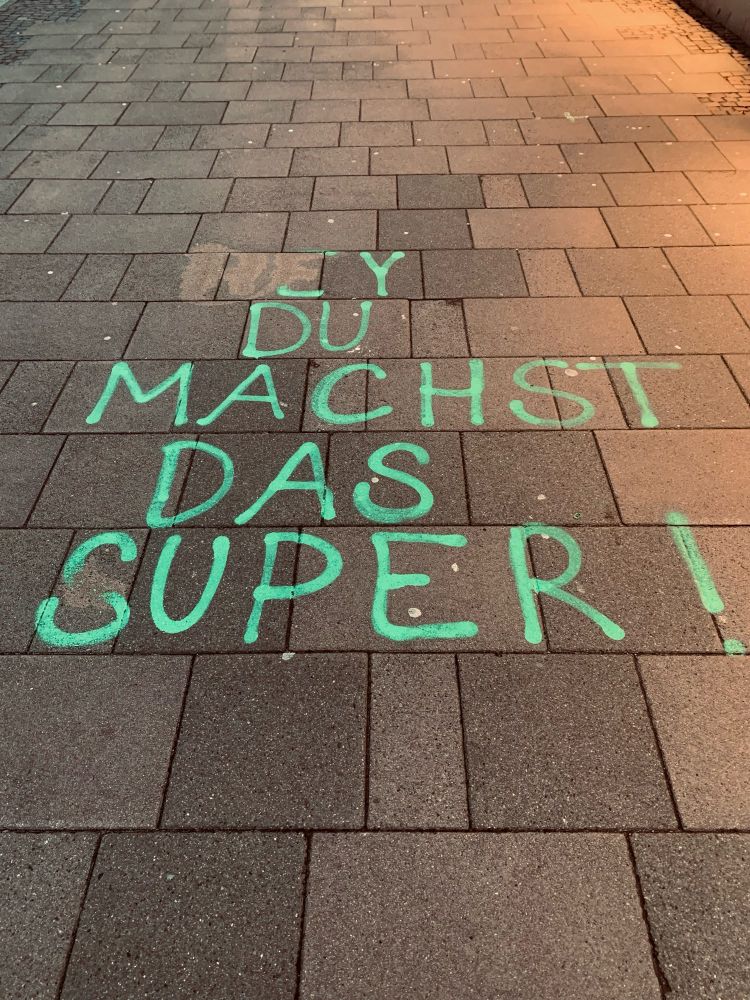 HEY
DU
MACHST
DAS
SUPER!